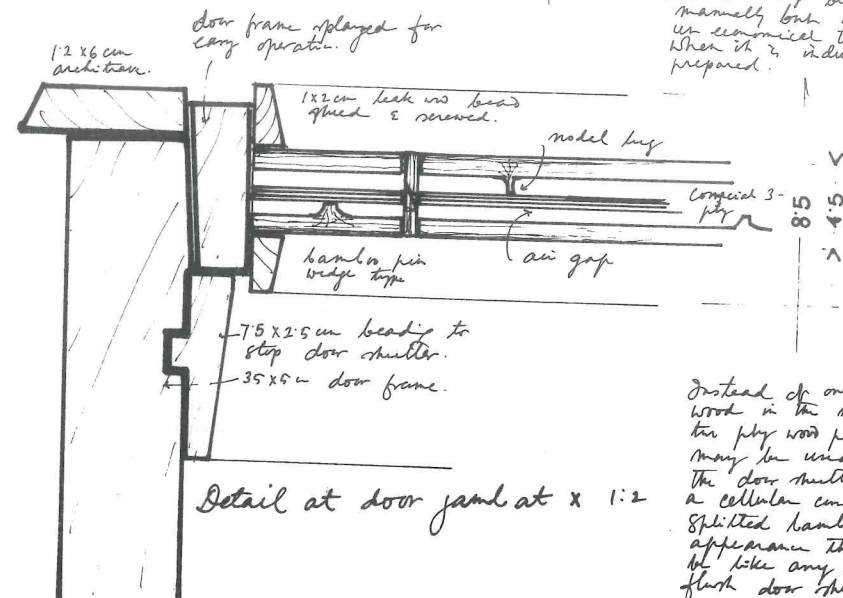 door frame splayed for
easy operation.
1.2 x 6 cm
architrave.
manually but
un economical t
when it is indu
prepared.
1x2 cm teak wd bead
glued & screwed.
nodel lug
comercial 3-
ply
8.5
< 4.5 >
bamboo pin
wedge type
air gap
7.5 x 2.5 cm beading to
stop door shutter.
35 x 5 cm door frame.
Detail at door jamb at x 1:2
Instead of on
wood in the
ply wood p
may be use
the door shutt
a cellular
splitted bamb
appearance th
be like any
flush door sh